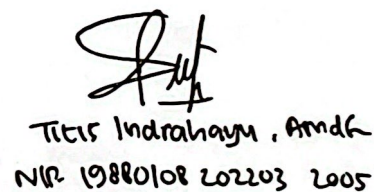 Titis Indrahayu, Amdk
NIP. 19880108 202203 2005